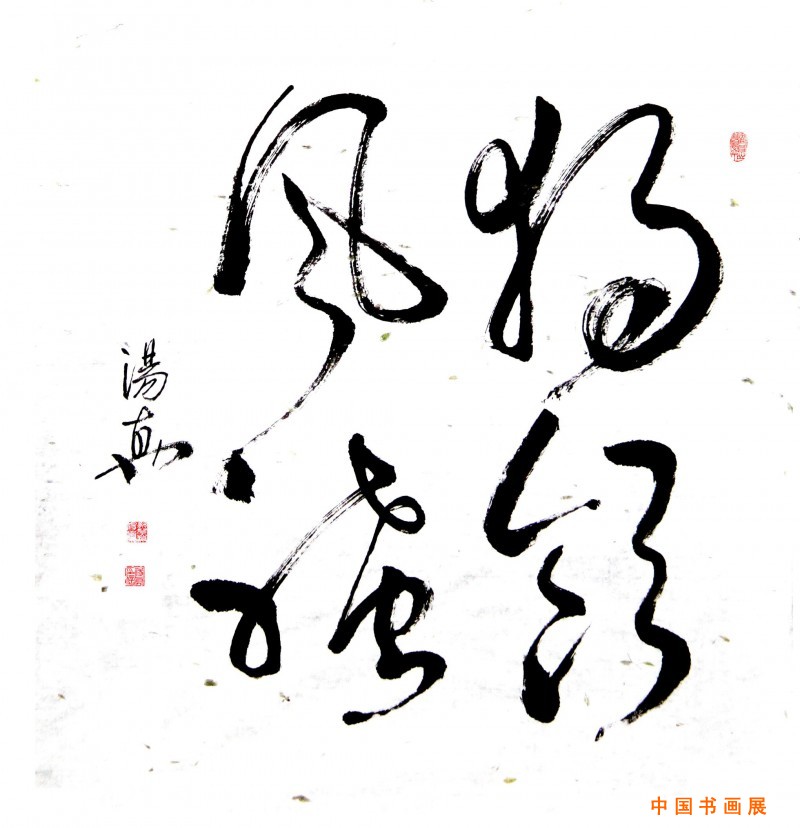 独领
风骚
湯真
中国书画展